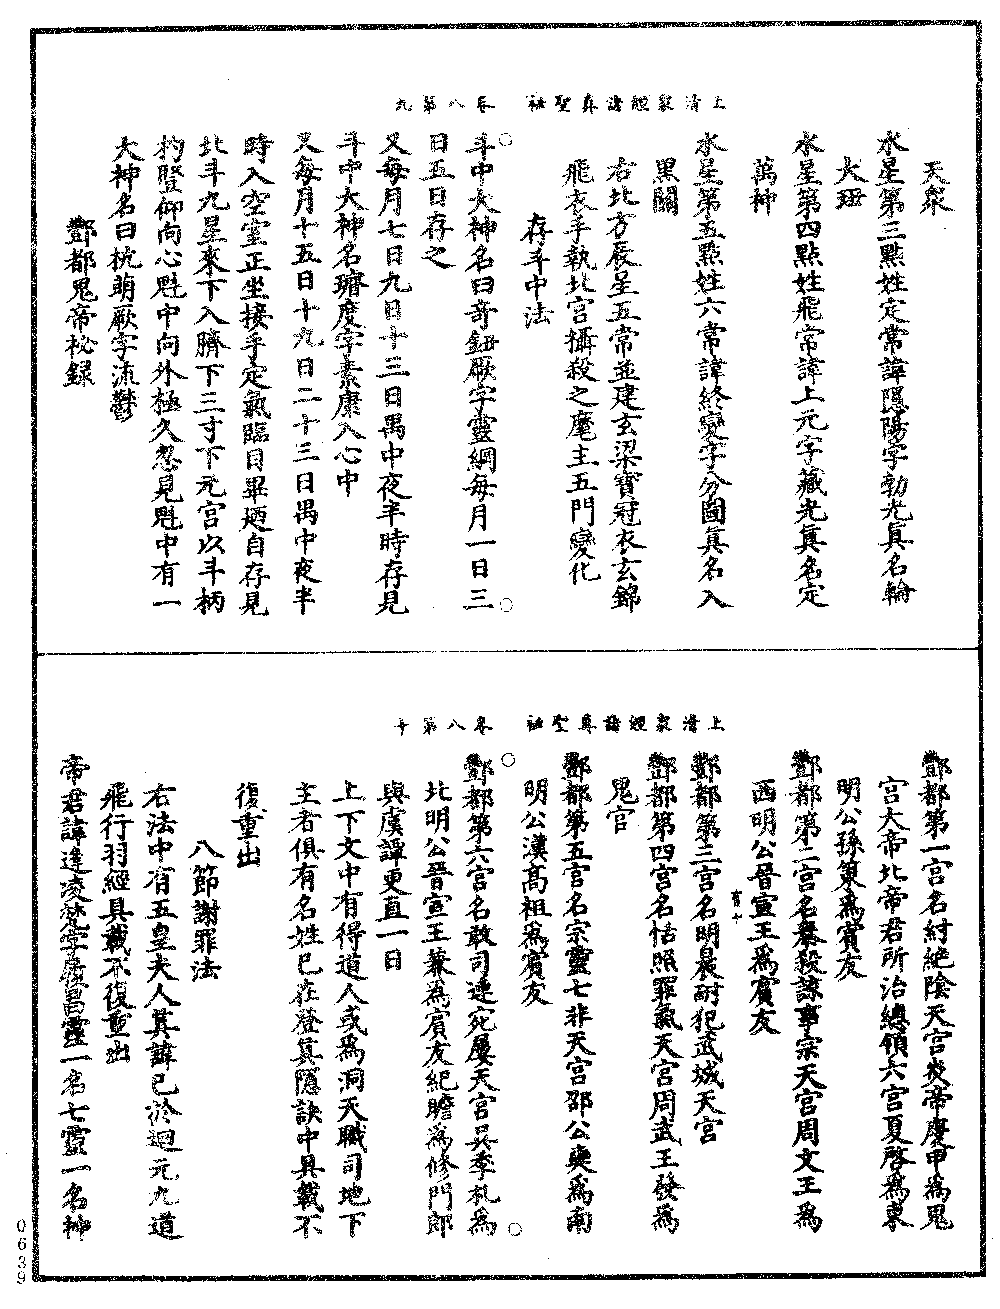 上清眾經諸真聖祕　卷八第九
天象
水星第三點姓定常諱隱陽字勃光真名輪
大珥
水星第四點姓飛常諱上元字藏光真名定
萬神
水星第五點姓六常諱終變字分圖真名入
黑關
右北方辰星五常並建玄梁寶冠衣玄錦
飛衣手執北宮攝殺之麾主五門變化
存斗中法
斗中大神名曰奇鈕厥字靈綱每月一日三
日五日存之
又每月七日九日十三日禺中夜半時存見
斗中大神名璿度字素康入心中
又每月十五日十九日二十三日禺中夜半
時入空室正坐接手定氣臨目畢迺自存見
北斗九星來下入臍下三寸下元宮以斗柄
杓豎仰向心魁中向外極久忽見魁中有一
大神名曰杭萌厥字流鬱
酆都鬼帝祕錄
上清眾經諸真聖祕　卷八第十
酆都第一宮名紂絕陰天宮炎帝慶甲為鬼
宮大帝北帝君所治總領六宮夏啓為東
明公孫策為賓友
酆都第二宮名泰殺諒事宗天宮周文王為
西明公晉宣王為賓友
酆都第三宮名明晨耐犯武城天宮
酆都第四宮名恬照罪氣天宮周武王發為
鬼官
酆都第五宮名宗靈七非天宮邵公奭為南
明公漢高祖為賓友
酆都第六宮名敢司連宛屢天宮吳季札為
北明公晉宣王兼為賓友紀瞻為修門郎
與虞譚更直一日
上下文中有得道人或為洞天職司地下
主者俱有名姓已在登真隱訣中具載不
復重出
八節謝罪法
右法中有五皇夫人其諱已於迴元九道
飛行羽經具載不復重出
帝君諱逢凌梵字履昌靈一名七靈一名神
0639